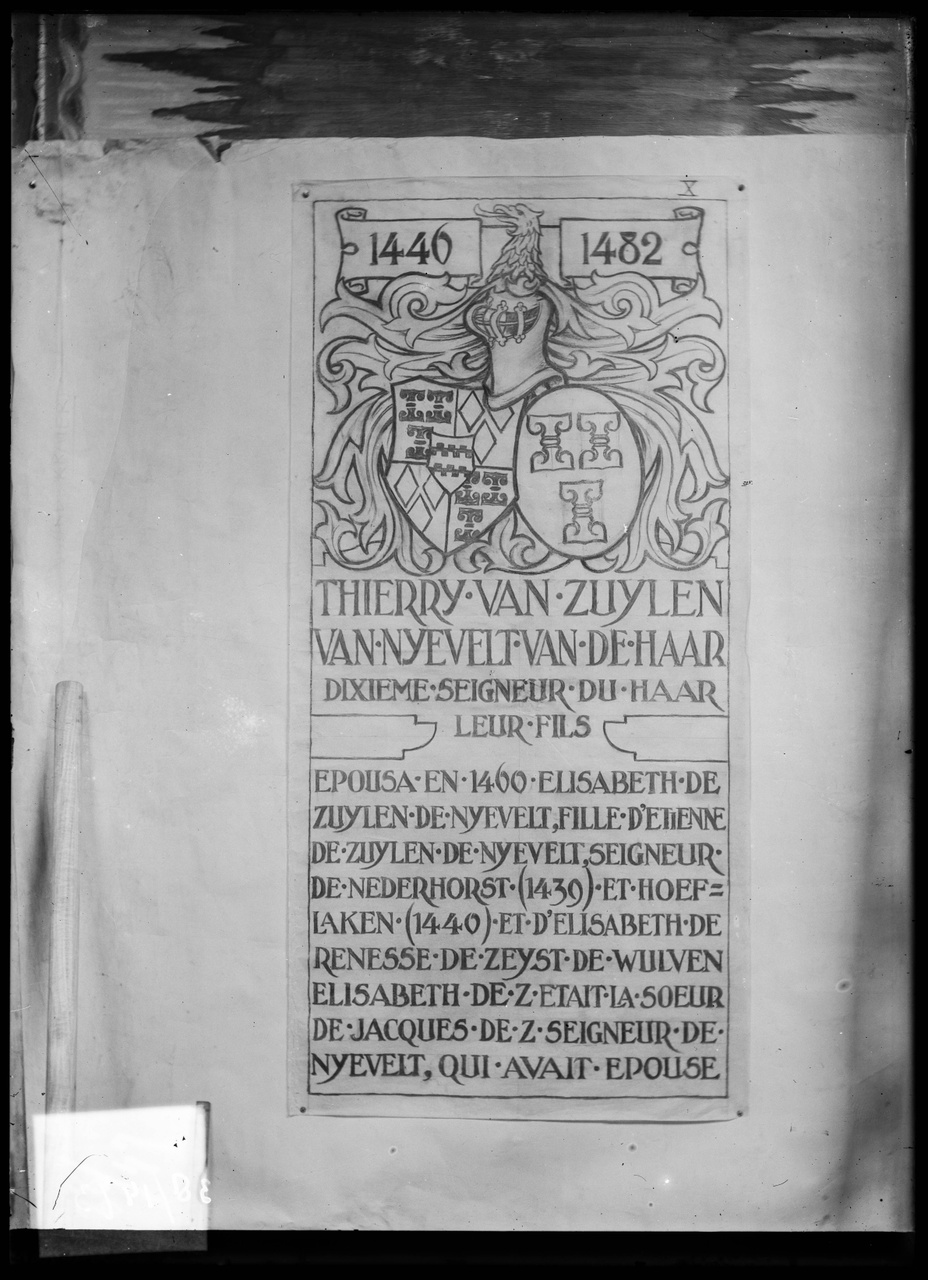 X
1446 1482
THIERRY·VAN·ZUYLEN
VAN·NYEVELT·VAN·DE·HAAR
DIXIEME·SEIGNEUR·DU·HAAR
LEUR·FILS
EPOUSA·EN·1460·ELISABETH·DE
ZUYLEN·DE·NYEVELT,FILLE·D'ETIENNE
DE·ZUYLEN·DE·NYEVELT,SEIGNEUR·
DE·NEDERHORST·(1439)·ET·HOEF=
LAKEN·(1440)·ET·D'ELISABETH·DE
RENESSE·DE·ZEYST·DE·WULVEN
ELISABETH·DE·Z·ETAIT·LA·SOEUR
DE·JACQUES·DE·Z·SEIGNEUR·DE·
NYEVELT, QUI·AVAIT·EPOUSE